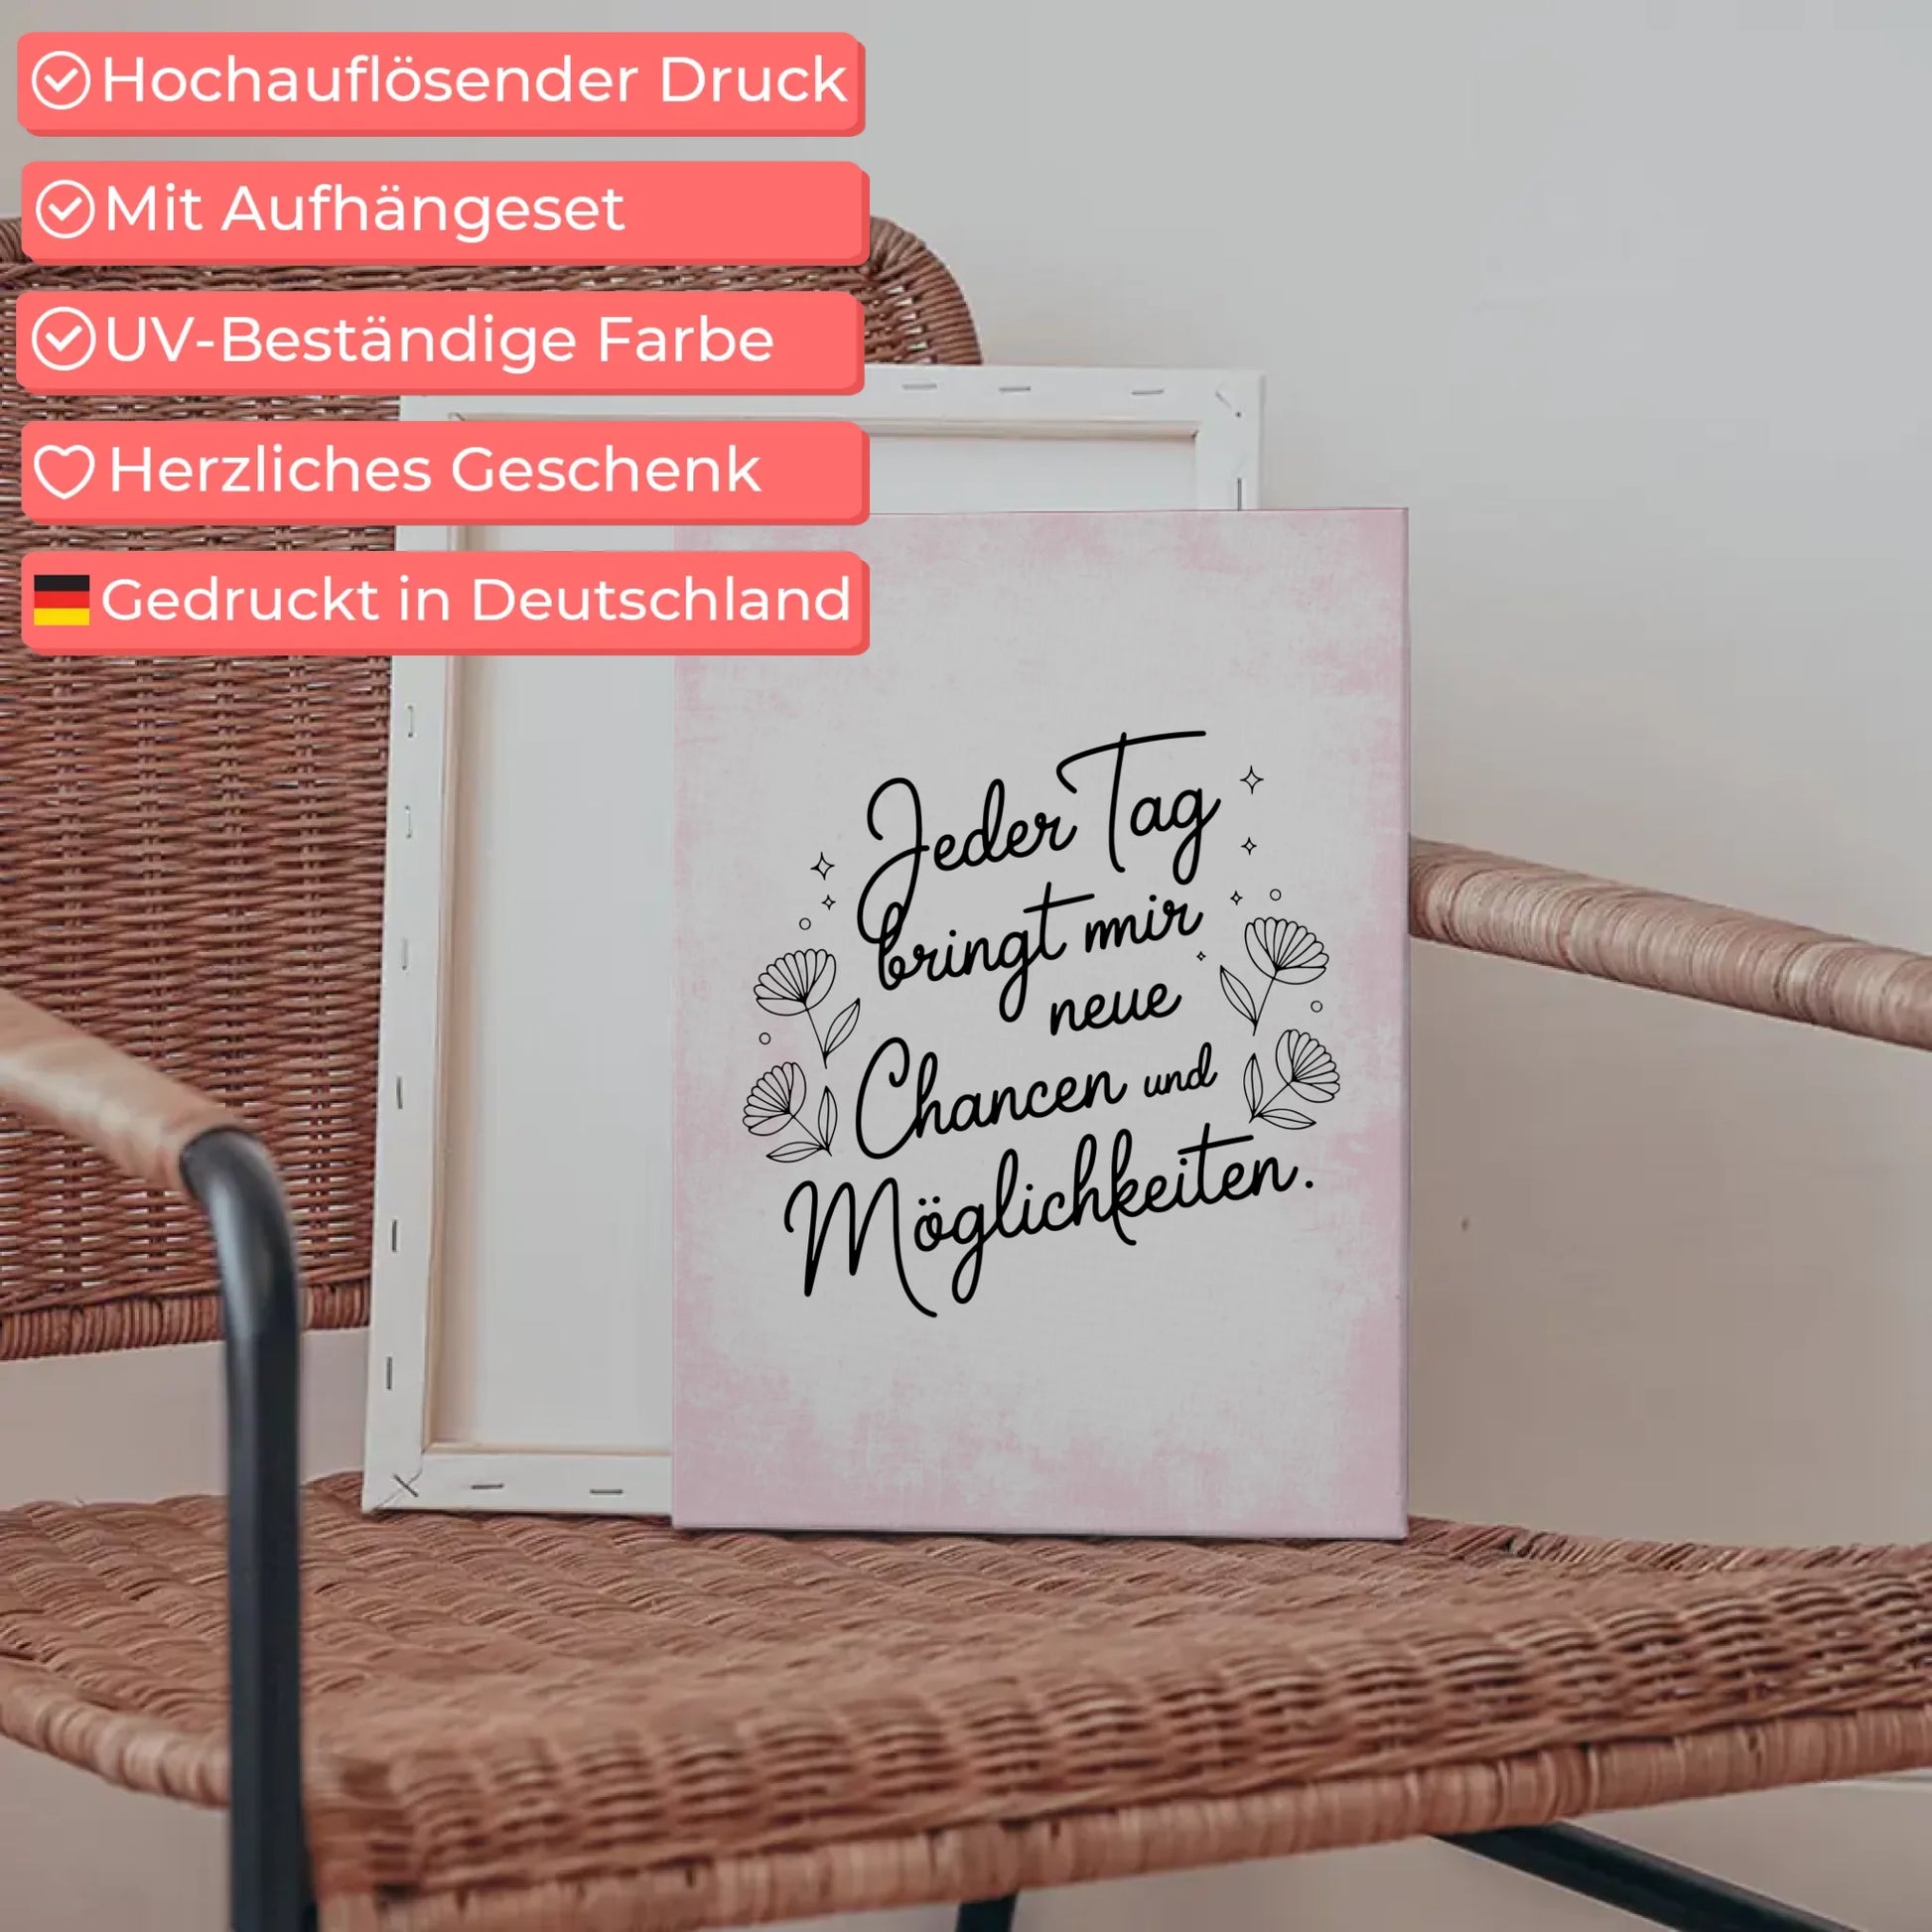 Hochauflösender Druck
Mit Aufhängeset
UV-Beständige Farbe
Herzliches Geschenk
Gedruckt in Deutschland
Jeder Tag
bringt mir
neue
Chancen und
Möglichkeiten.